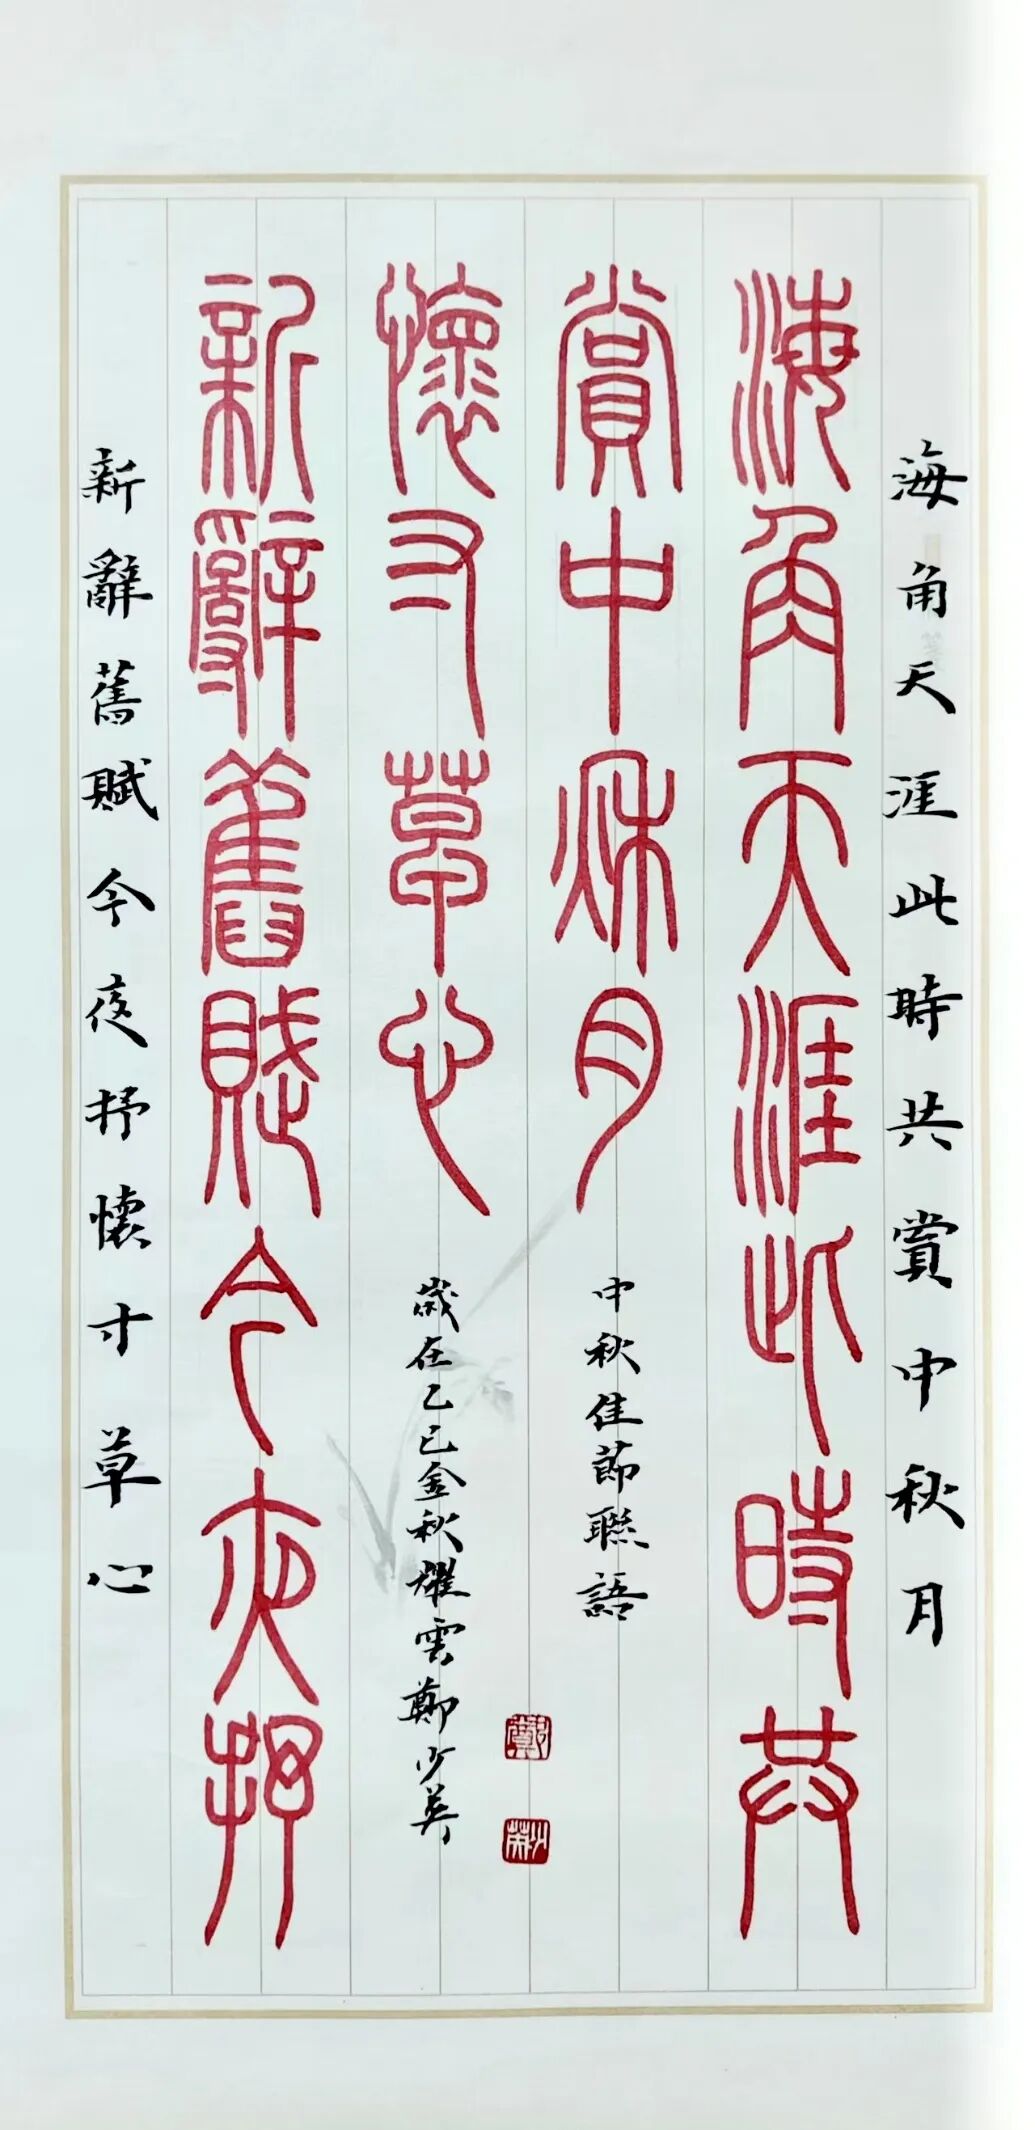 海角天涯此時共賞中秋月
海角天涯此時共
賞中秋月
中秋佳節聯語
新辭舊賦今夜抒
懷寸草心
歲在乙巳金秋耀雲鄭少英
新辭舊賦今夜抒懷寸草心